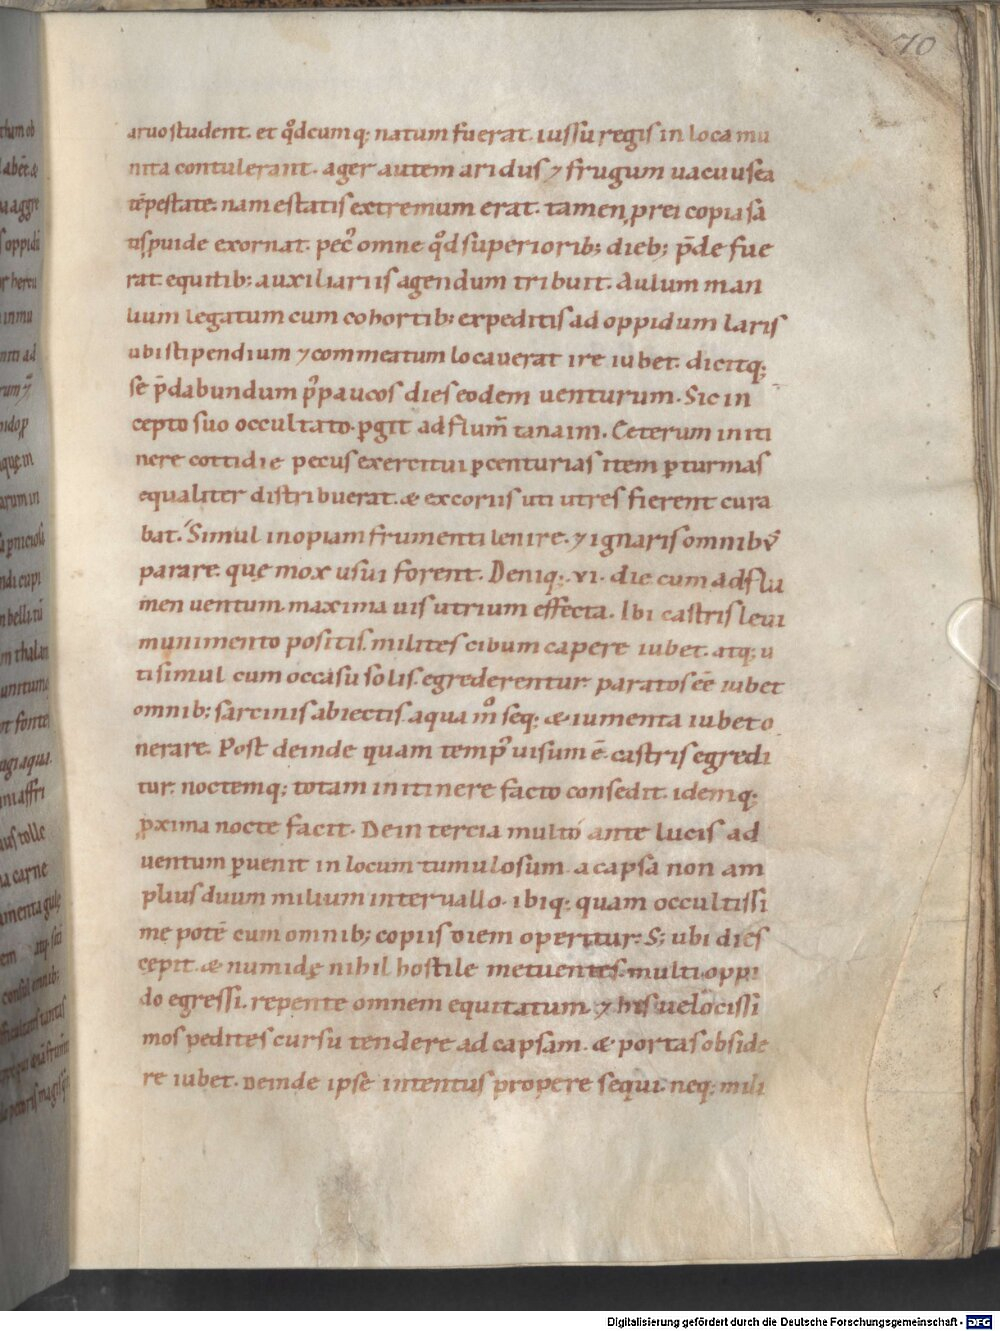 70
aruo student. et q̊dcumq; natum fuerat. iussu regis in loca mu
nita contulerant. ager autem aridus ⁊ frugum uacuus ea
tēpestate. nam estatis extremum erat. tamen ꝓ rei copia sa
tis ꝓuide exornat. pec᷒ omne q̊d superiorib; dieb; p̄de fue
rat. equitib; auxiliariis agendum tribuit. Aulum man
lium legatum cum cohortib; expeditis ad oppidum laris
ubi stipendium ⁊ commeatum locauerat ire iubet. dicitq;
se p̄dabundum p᷒ paucos dies eodem uenturum. Sic in
cepto suo occultato. ꝑgit ad flum̄ tanaim. Ceterum in iti
nere cottidie pecus exercitui ꝑ centurias item ꝑ turmas
equaliter distribuerat. & ex coriis uti utres fierent cura
bat. Simul inopiam frumenti lenire. ⁊ ignaris omnib᷒
parare. quę mox usui forent. Deniq; .vi. die cum ad flu
men uentum. maxima uis utrium effecta. Ibi castris leui
munimento positis. milites cibum capere iubet. atq; u
ti simul cum occasu solis. egrederentur paratos eē iubet
omnib; sarcinis abiectis. aqua m̊ seq; & iumenta iubet o
nerare. Post deinde quam temp᷒ uisum ē. castris egredi
tur. noctemq; totam in itinere facto consedit. idemq;
ꝓxima nocte facit. Dein tercia multo ante lucis ad
uentum ꝑuenit in locum tumulosum. a capsa non am
plius duum milium interuallo. ibiq; quam occultissi
me potē cum omnib; copiis diem operitur. S; ubi dies
cępit. & numidę nihil hostile metuentes. multi oppi
do egressi. repente omnem equitatum. ⁊ his uelocissi
mos pedites cursu tendere ad capsam. & portas obside
re iubet. Deinde ipse intentus propere sequi. neq; mili
Digitalisierung gefördert durch die Deutsche Forschungsgemeinschaft - DFG